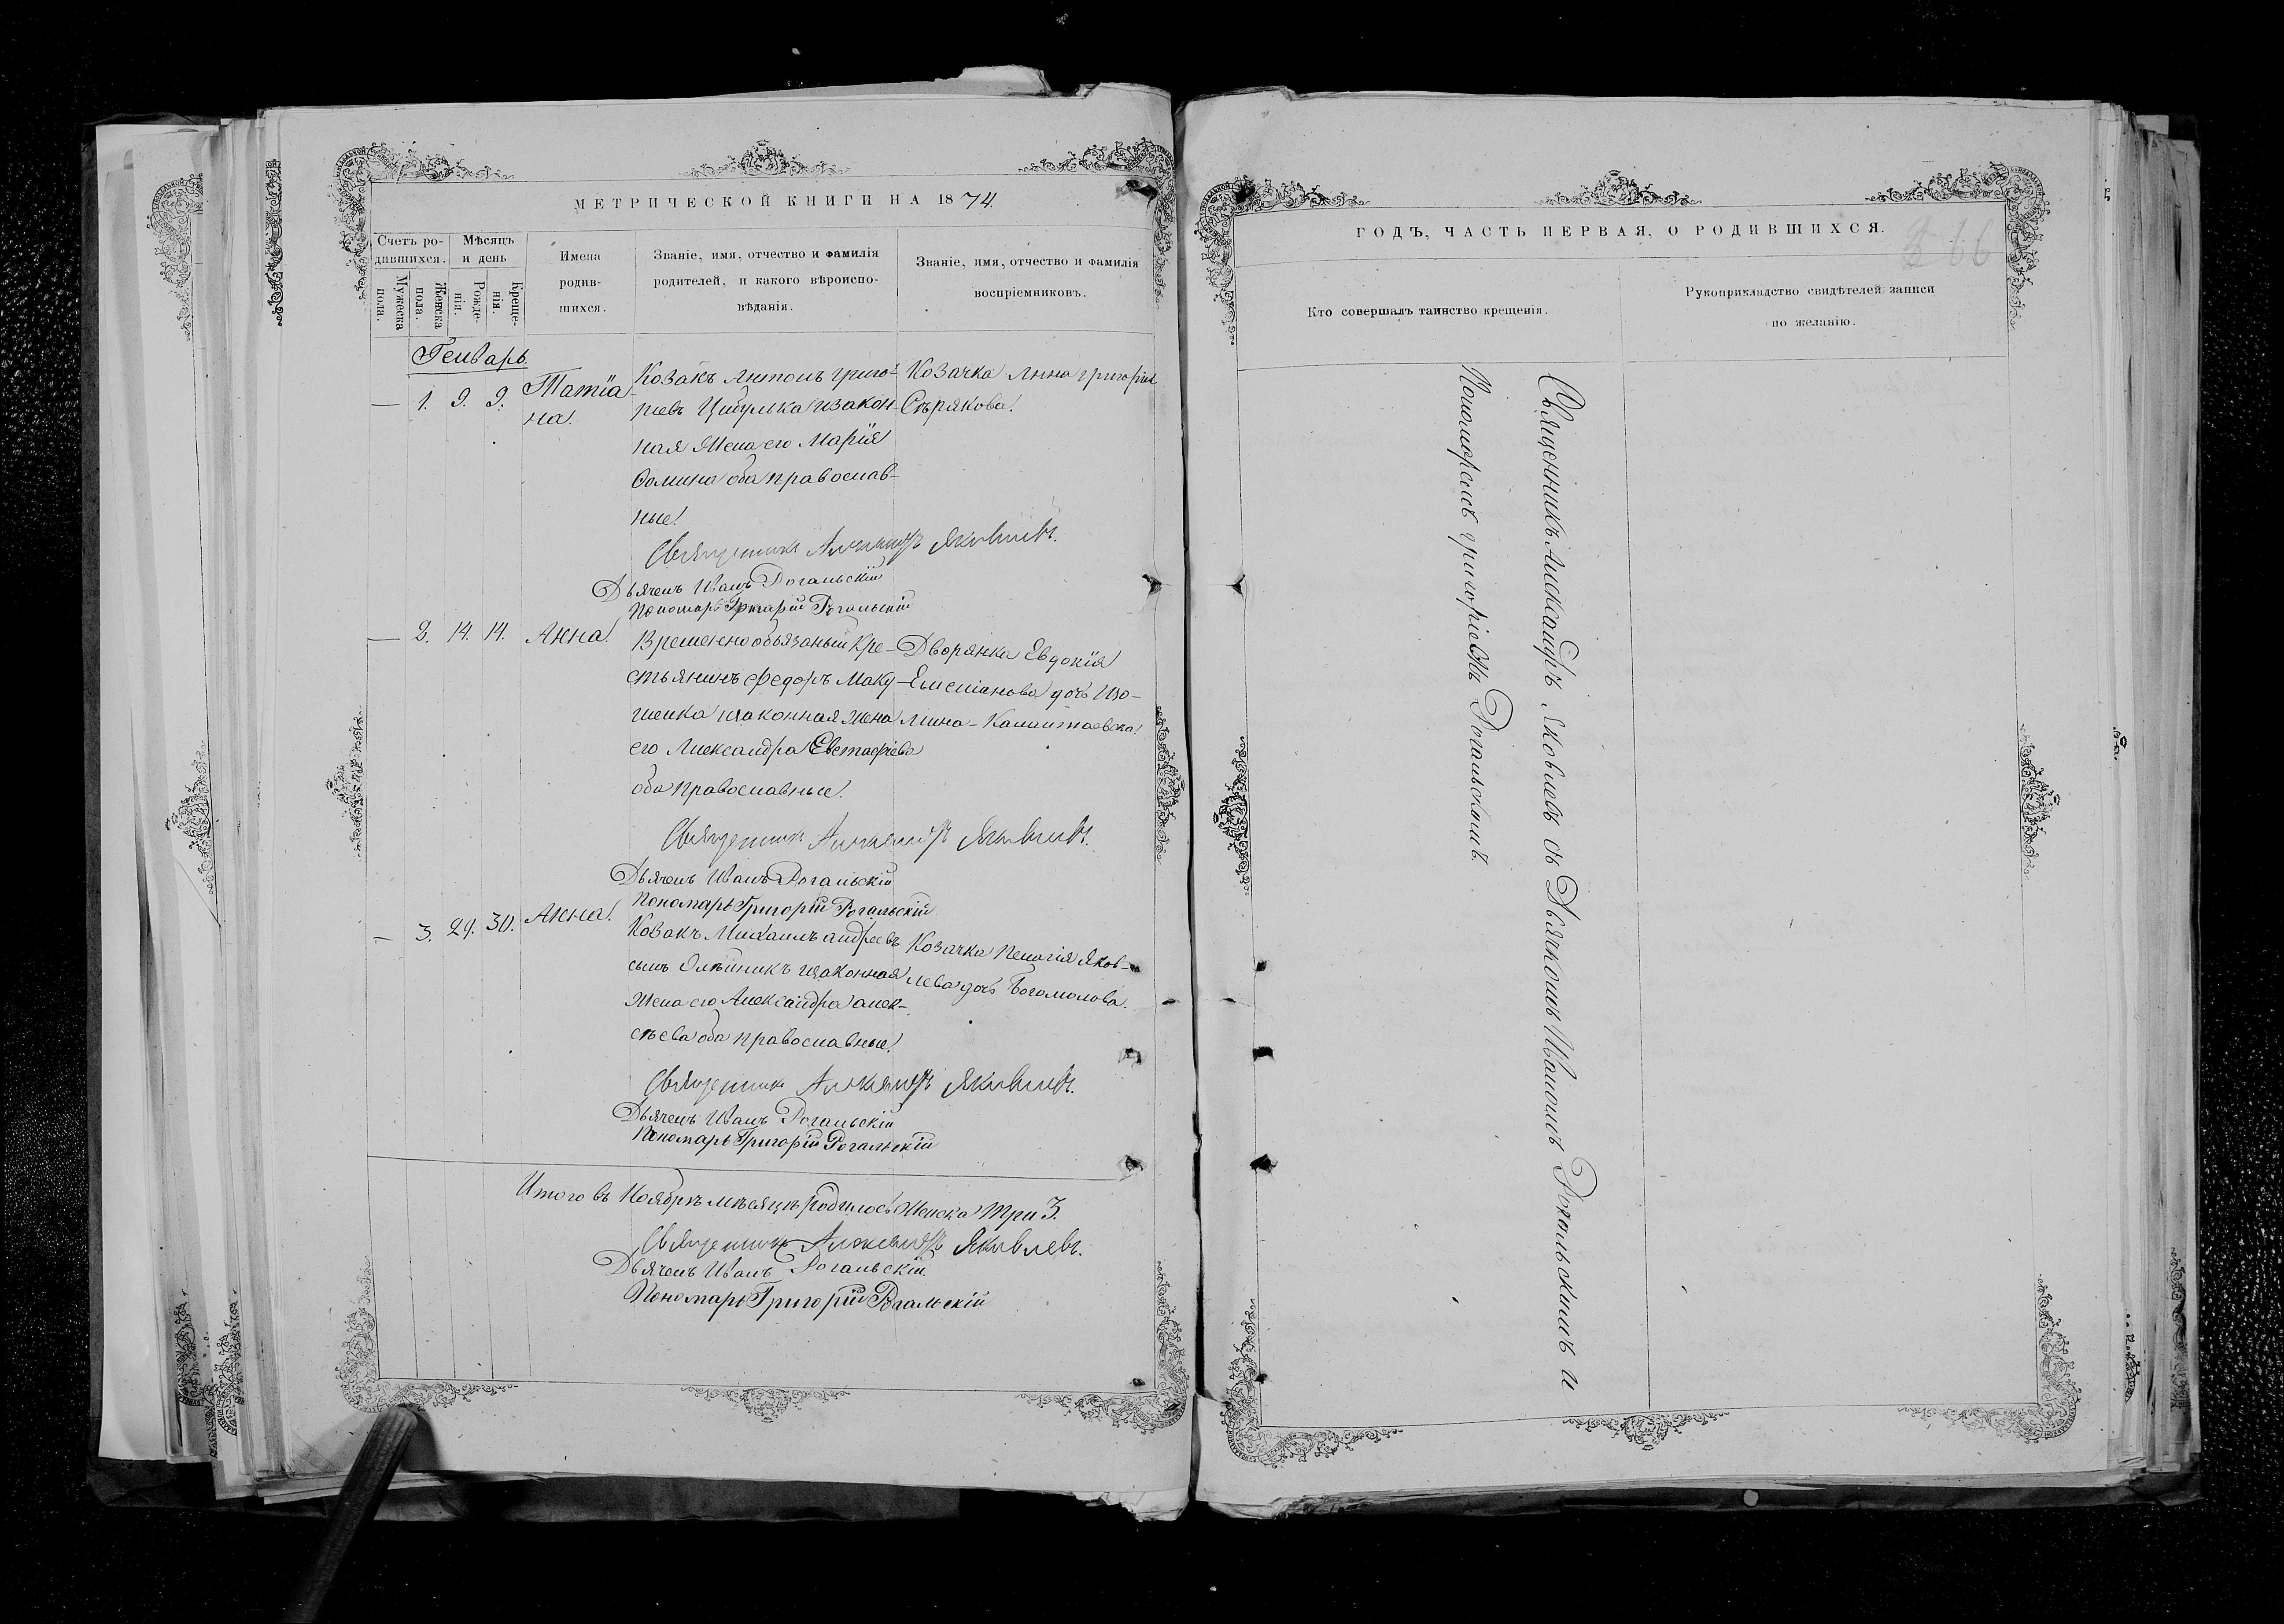 МЕТРИЧЕСКОЙ КНИГИ НА 1874
Счетъ родившихся.
Мѣсяцъ и день
Имена родившихся.
Званіе, имя, отчество и фамилія родителей, и какого вѣроисповѣданія.
Званіе, имя, отчество и фамилія воспріемниковъ.
Мужеска пола.
Женска пола.
Рожденія.
Крещенія.
Генварь.
— 1. 9. 9. Татіа-
на.
Козакъ Антонъ Григо-
ріевъ Цибулька и закон-
ная жена его Марія
Фомина оба православ-
ные.
Козачка Анна Григоріева
Сѣрякова.
Священникъ Александръ Яковлевъ.
Дьячекъ Иванъ Рогальскій
Пономарь Григорій Рогальскій
— 2. 14. 14. Анна.
Временнообязаный кре-
стьянинъ Федоръ Маку-
шенко и законная жена
его Александра Евстафіева
оба православные.
Дворянка Евдокія
Емеліанова дочь
Священникъ Александръ Яковлевъ.
Дьячекъ Иванъ Рогальскій
Пономарь Григорій Рогальскій
— 3. 29. 30. Анна.
Козакъ Михаилъ Андреевъ
сынъ Олѣйникъ и законная
жена его Александра Алек-
сѣева оба православные.
Козачка Пелагія Яков-
лева дочь Богомолова.
Священникъ Александръ Яковлевъ.
Дьячекъ Иванъ Рогальскій
Пономарь Григорій Рогальскій
Итого въ Ноябрѣ мѣсяцѣ родилось женска три 3.
Священникъ Александръ Яковлевъ.
Дьячекъ Иванъ Рогальскій.
Пономарь Григорій Рогальскій
ГОДЪ, ЧАСТЬ ПЕРВАЯ, О РОДИВШИХСЯ.
Кто совершалъ таинство крещенія.
Рукоприкладство свидѣтелей записи по желанію.
Священникъ Александръ Яковлевъ съ Дьячкомъ Иваномъ Рогальскимъ и
Пономоремъ Григоріемъ Рогальскимъ.